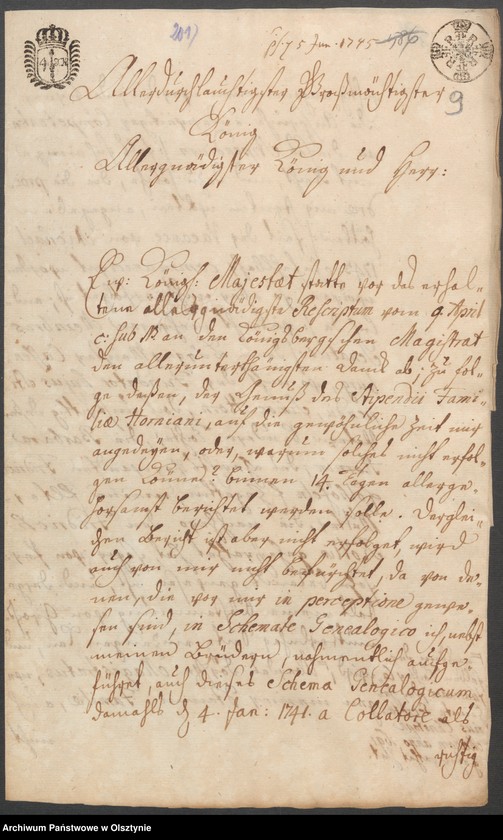 201)
5 Jun. 1745
9
Allerdurchlauchtigster Großmächtigster
König
Allergnädigster König und Herr:
Ew: Königl: Majestæt statte vor das erhal-
tene allergnädigste Rescriptum vom 9. April
c: sub an den Königsbergschen Magistrat
den allerunterthänigsten Danck ab, zu fol-
ge deßen, der Genuß des Stipendii Fami-
liæ Horniani, auf die gewöhnliche Zeit mir
angedeyen, oder, warum solches nicht erfol-
gen könne? binnen 14. Tagen allerge-
horsamst berichtet werden solle. Derglei-
chen Bericht ist aber nicht erfolget, wird
auch von mir nicht befürchtet, da von de-
nen, die vor mir in perceptione gewe-
sen sind, in Schemate Genealogico ich, nebst
meinen Brüdern, nahmentlich aufge-
führet, auch dieses Schema Genealogicum
damahls d 4. Jan: 1741. a Collatore als
richtig
Archiwum Państwowe w Olsztynie